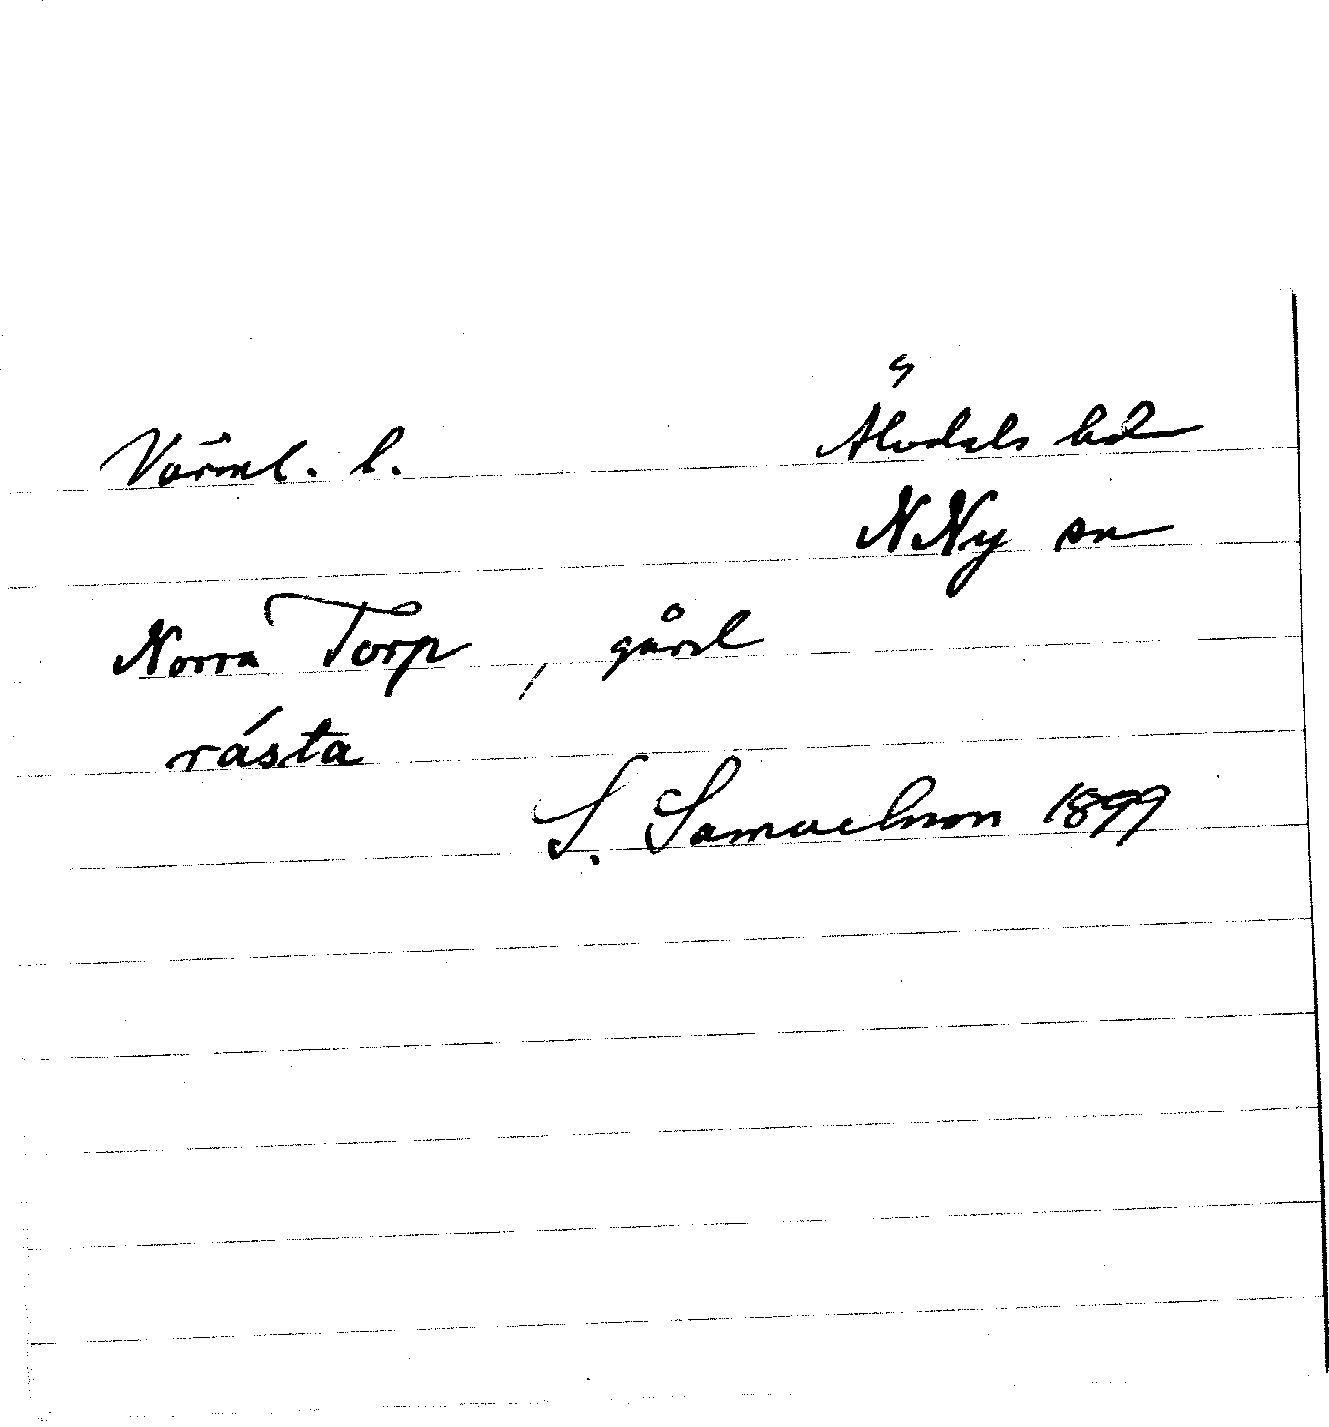 Värml. l. Älvdals hd
N Ny sn
Norra Torp, gård
rásta
S. Samuelsson 1899